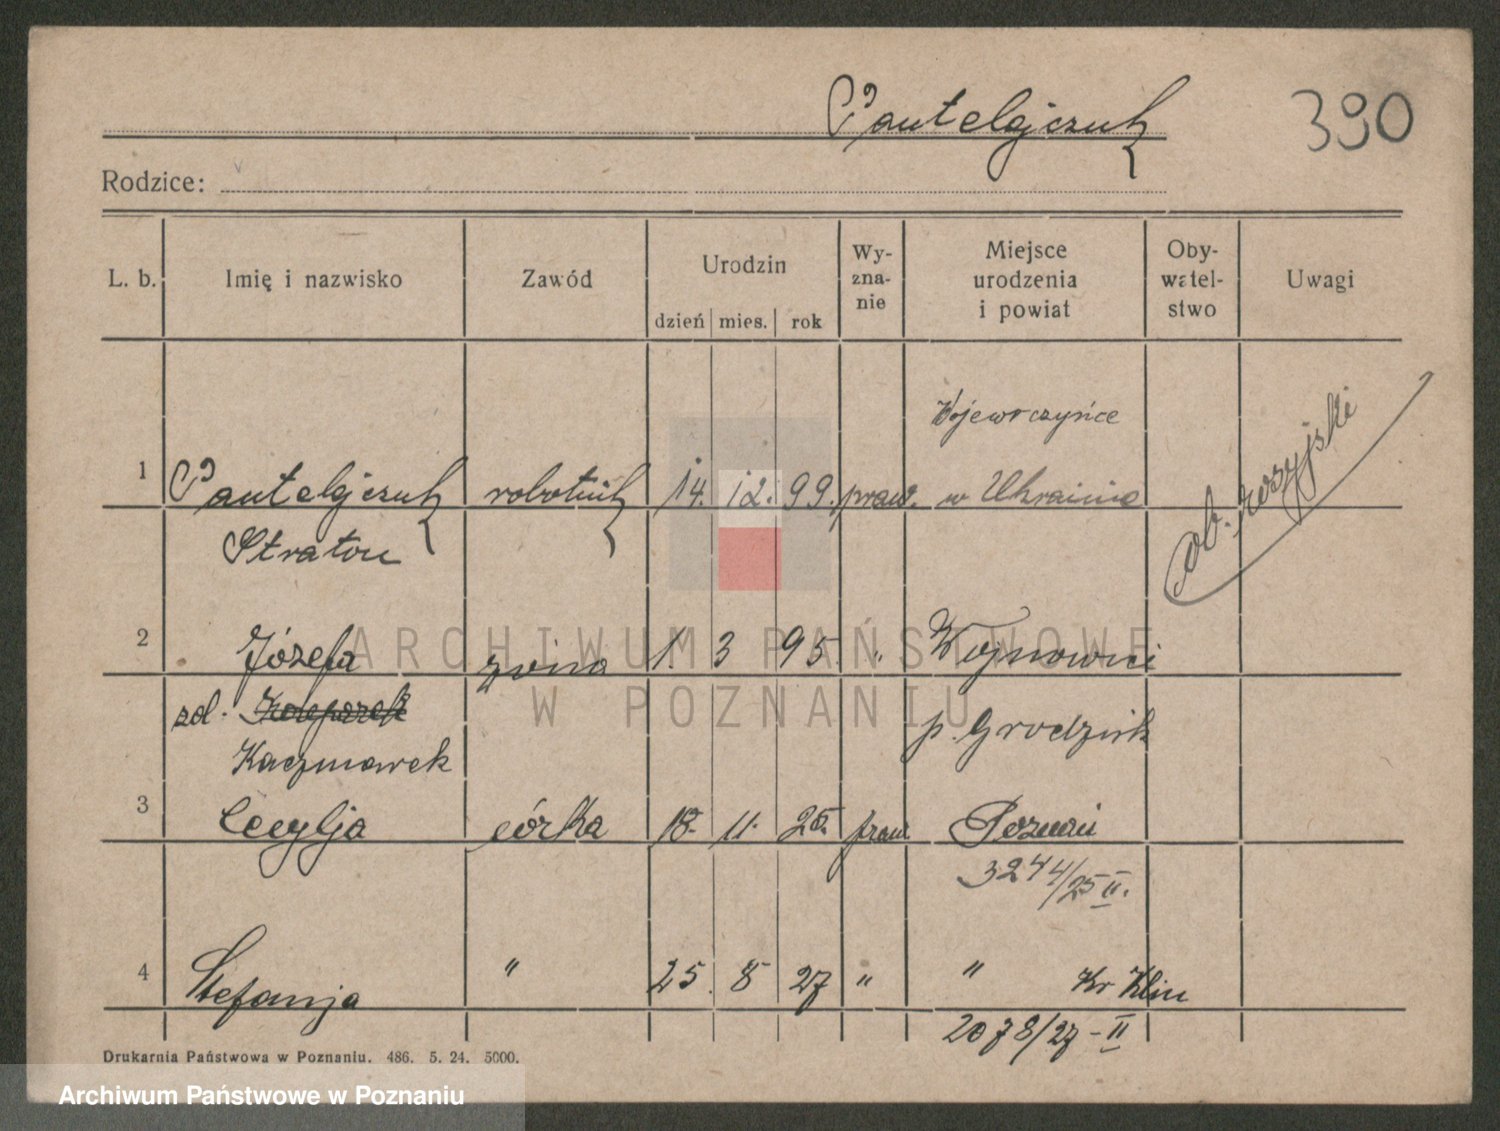 Pantelejczuk
390
Rodzice:
L. b. Imię i nazwisko Zawód Urodzin Wy-zna-nie Miejsce urodzenia i powiat Oby-watel-stwo Uwagi
dzień mies. rok
1 Pantelejczuk robotnik 14. 12. 99. praw. w Ukrainie
Straton
ob. rosyjski
2 Józefa żona 1 3 95 " Wojnowici
zd. p. Grodzisk
Kaczmarek
3 Cecylja córka 18. 11. 25. praw. Poznań
3244/25 II.
4 Stefanja " 25. 8 27 " " Kr Klin
2078/27 - II
Drukarnia Państwowa w Poznaniu. 486. 5. 24. 5000.
ARCHIWUM PAŃSTWOWE
W POZNANIU
Archiwum Państwowe w Poznaniu